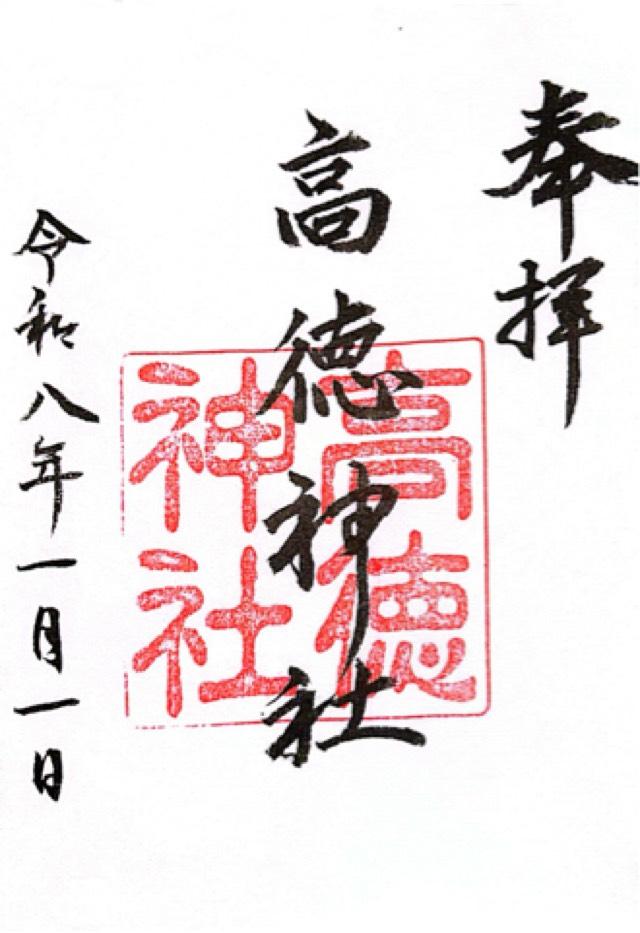 奉拝
高徳神社
高徳神社
令和八年一月一日